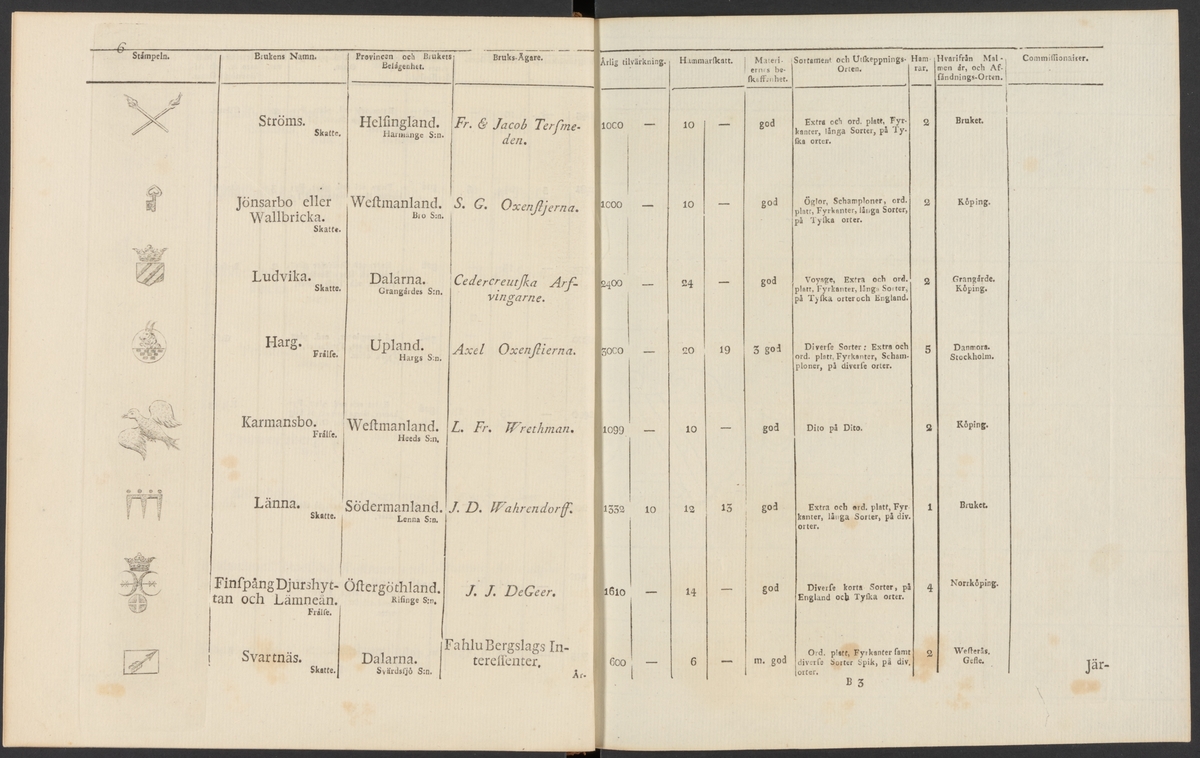 6
Stämpeln. Brukens Namn. Provincen och Brukets Bruks-Ägare. Årlig tilvärkning. Hammarskatt. Materi- Sortament och Utskeppnings- Ham- Hvarifrån Mal- Commissionairer.
Belägenhet. ernes be- Orten. rar. men är, och Af-
skaffenhet. sändnings-Orten.
Ströms. Helsingland. Fr. & Jacob Tersme- 1000 — 10 — god Extra och ord. platt, Fyr- 2 Bruket.
Skatte. Harmånge S:n. den. kanter, långa Sorter, på Ty-
ska orter.
Jönsarbo eller Westmanland. S. G. Oxenstjerna. 1000 — 10 — god Öglor, Schamploner, ord. 2 Köping.
Wallbricka. Bro S:n. platt, Fyrkanter, långa Sorter,
Skatte. på Tyska orter.
Ludvika. Dalarna. Cedercreutska Arf- 2400 — 24 — god Voyage, Extra och ord. 2 Grangärde.
Skatte. Grangårdes S:n. vingarne. platt, Fyrkanter, långa Sorter, Köping.
på Tyska orter och England.
Harg. Upland. Axel Oxenstierna. 3000 — 20 19 3 god Diverse Sorter: Extra och 5 Danmora.
Frälse. Hargs S:n. ord. platt, Fyrkanter, Scham- Stockholm.
ploner, på diverse orter.
Karmansbo. Westmanland. L. Fr. Wrethman. 1099 — 10 — god Dito på Dito. 2 Köping.
Frälse. Heeds S:n.
Länna. Södermanland. J. D. Wahrendorff. 1332 10 12 13 god Extra och ord. platt, Fyr- 1 Bruket.
Skatte. Lenna S:n. kanter, långa Sorter, på div.
orter.
Finspång Djurshyt- Östergöthland. J. J. DeGeer. 1610 — 14 — god Diverse korta Sorter, på 4 Norrköping.
tan och Lämneån. Risinge S:n. England och Tyska orter.
Frälse.
Svartnäs. Dalarna. Fahlu Bergslags In- 600 — 6 — m. god Ord. platt, Fyrkanter samt 2 Westerås.
Skatte. Svärdsjö S:n. teressenter. diverse Sorter Spik, på div. Gefle.
orter.
År- B 3 Jär-